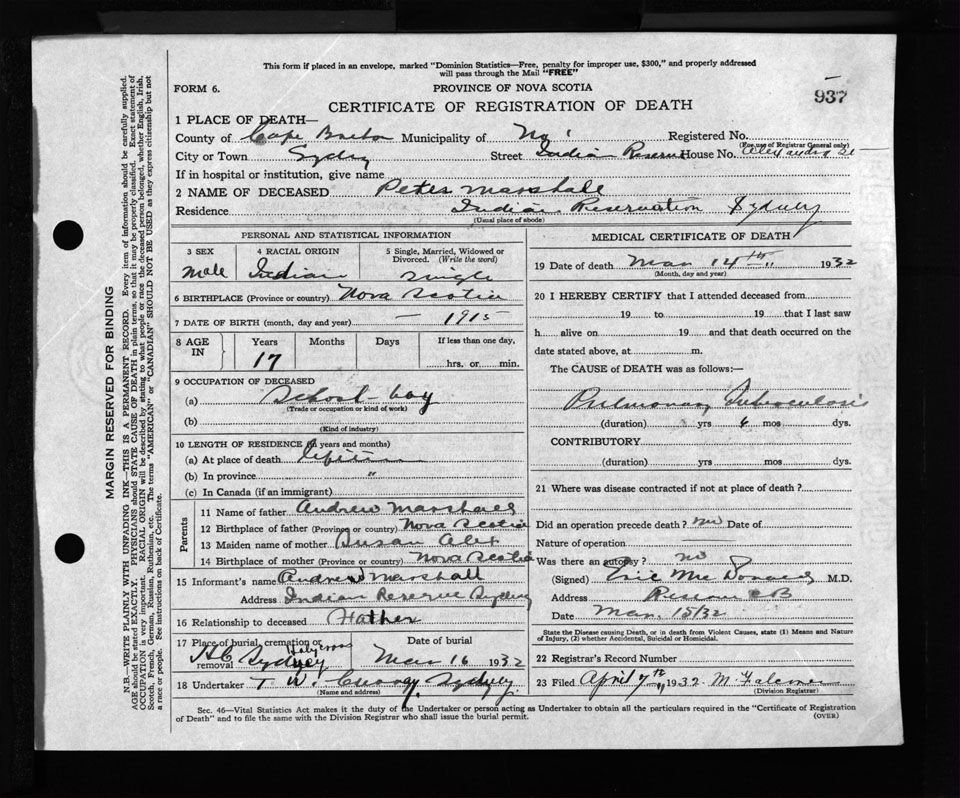 This form if placed in an envelope, marked "Dominion Statistics—Free, penalty for improper use, $300," and properly addressed
will pass through the Mail "FREE"
FORM 6.
PROVINCE OF NOVA SCOTIA
937
CERTIFICATE OF REGISTRATION OF DEATH
1 PLACE OF DEATH—
County of Cape Breton Municipality of No 1 Registered No.
(For use of Registrar General only)
City or Town Sydney Street Indian Reserve House No. Alexandra St
If in hospital or institution, give name
2 NAME OF DECEASED Peter Marshall
Residence Indian Reservation Sydney
(Usual place of abode)
PERSONAL AND STATISTICAL INFORMATION
3 SEX 4 RACIAL ORIGIN 5 Single, Married, Widowed or Divorced. (Write the word)
Male Indian Single
6 BIRTHPLACE (Province or country) Nova Scotia
7 DATE OF BIRTH (month, day and year) — 1915
8 AGE IN Years Months Days If less than one day,
17 hrs. or min.
9 OCCUPATION OF DECEASED
(a) School-boy
(Trade or occupation or kind of work)
(b)
(Kind of industry)
10 LENGTH OF RESIDENCE (in years and months)
(a) At place of death lifetime
(b) In province "
(c) In Canada (if an immigrant)
Parents
11 Name of father Andrew Marshall
12 Birthplace of father (Province or country) Nova Scotia
13 Maiden name of mother Susan Alex
14 Birthplace of mother (Province or country) Nova Scotia
15 Informant's name Andrew Marshall
Address Indian Reserve Sydney
16 Relationship to deceased Father
17 Place of burial, cremation or removal Holy Cross Sydney
Date of burial Mar 16 1932
18 Undertaker T. W. Curry Sydney
(Name and address)
MEDICAL CERTIFICATE OF DEATH
19 Date of death Mar 14th 1932
(Month, day and year)
20 I HEREBY CERTIFY that I attended deceased from
19 to 19 that I last saw
h alive on 19 and that death occurred on
date stated above, at m.
The CAUSE of DEATH was as follows:—
Pulmonary Tuberculosis
(duration) yrs 6 mos dys.
CONTRIBUTORY
(duration) yrs mos dys.
21 Where was disease contracted if not at place of death?
Did an operation precede death? no Date of
Nature of operation
Was there an autopsy? no
(Signed) Eric MacDonald M.D.
Address C B
Date Mar, 15/32
State the Disease causing Death, or in death from Violent Causes, state (1) Means and Nature of Injury, (2) whether Accidental, Suicidal or Homicidal.
22 Registrar's Record Number
23 Filed April 7th 1932
(Division Registrar)
Sec. 46—Vital Statistics Act makes it the duty of the Undertaker or person acting as Undertaker to obtain all the particulars required in the "Certificate of Registration
of Death" and to file the same with the Division Registrar who shall issue the burial permit.
(OVER)
MARGIN RESERVED FOR BINDING
N.B.—WRITE PLAINLY WITH UNFADING INK—THIS IS A PERMANENT RECORD. Every item of information should be carefully supplied.
AGE should be stated EXACTLY. PHYSICIANS should STATE CAUSE OF DEATH in plain terms, so that it may be properly classified. Exact statement of
OCCUPATION is very important. RACIAL ORIGIN will be described by stating to what people or race the deceased person belonged, whether English, Irish,
Scotch, French, German, Russian, Ruthenian, etc. The terms "AMERICAN" or "CANADIAN" SHOULD NOT BE USED as they express citizenship but not
a race or people. See instructions on back of Certificate.